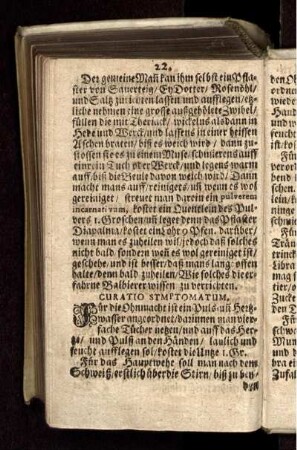 22.
Der gemeine Mañ kan ihm selbst ein Pfla-
ster von Sauerteig/ Ey Dotter/ Rosenöhl/
und Saltz zurichten lassen und aufflegen/ et-
liche nehmen eine grosse außgehölete Zwibel/
füllen die mit Theriack/ wickelns alsdann in
Hede und Werck/ und lassens in einer heissen
Aschen braten/ biß es weich wird/ dann zu-
stossen sie es zu einem Muse/ schmierens auff
ein rein Tuch oder Werck/ und legens warm
auff/ biß die Beule davon weich word/ Dann
macht mans auff/ reinigets/ uñ wenn es wol
gereiniget/ streuet man darein ein pulverem
incarnativum, kostet ein Quentlein des Pul-
vers 1. Groschen/ uñ leget denn das Pflaster
Diapalma/ kostet ein Loht 9 Pfen. darüber/
wenn man es zuheilen wil/ jedoch daß solches
nicht bald/ sondern weñ es wol gereiniget ist/
geschehe/ und ist besser/ daß mans lang offen
halte/ denn bald zuheilen/ Wie solches die er-
fahrne Balbierer wissen zu verrichten.
CURATIO SYMPTOMATUM.
Für die Ohnmacht ist ein Puls-uñ Hertz-
wasser angeordnet/ darinnen man vier-
fache Tücher netzen/ und auff das Her-
tze/ und Pulß an den Händen/ laulich und
feucht aufflegen sol/ kostet die Untze 1. Gr.
Für das Hauptwehe soll man nach dem
Schweiß/ erstlich über die Stirn/ biß zu bey-
den